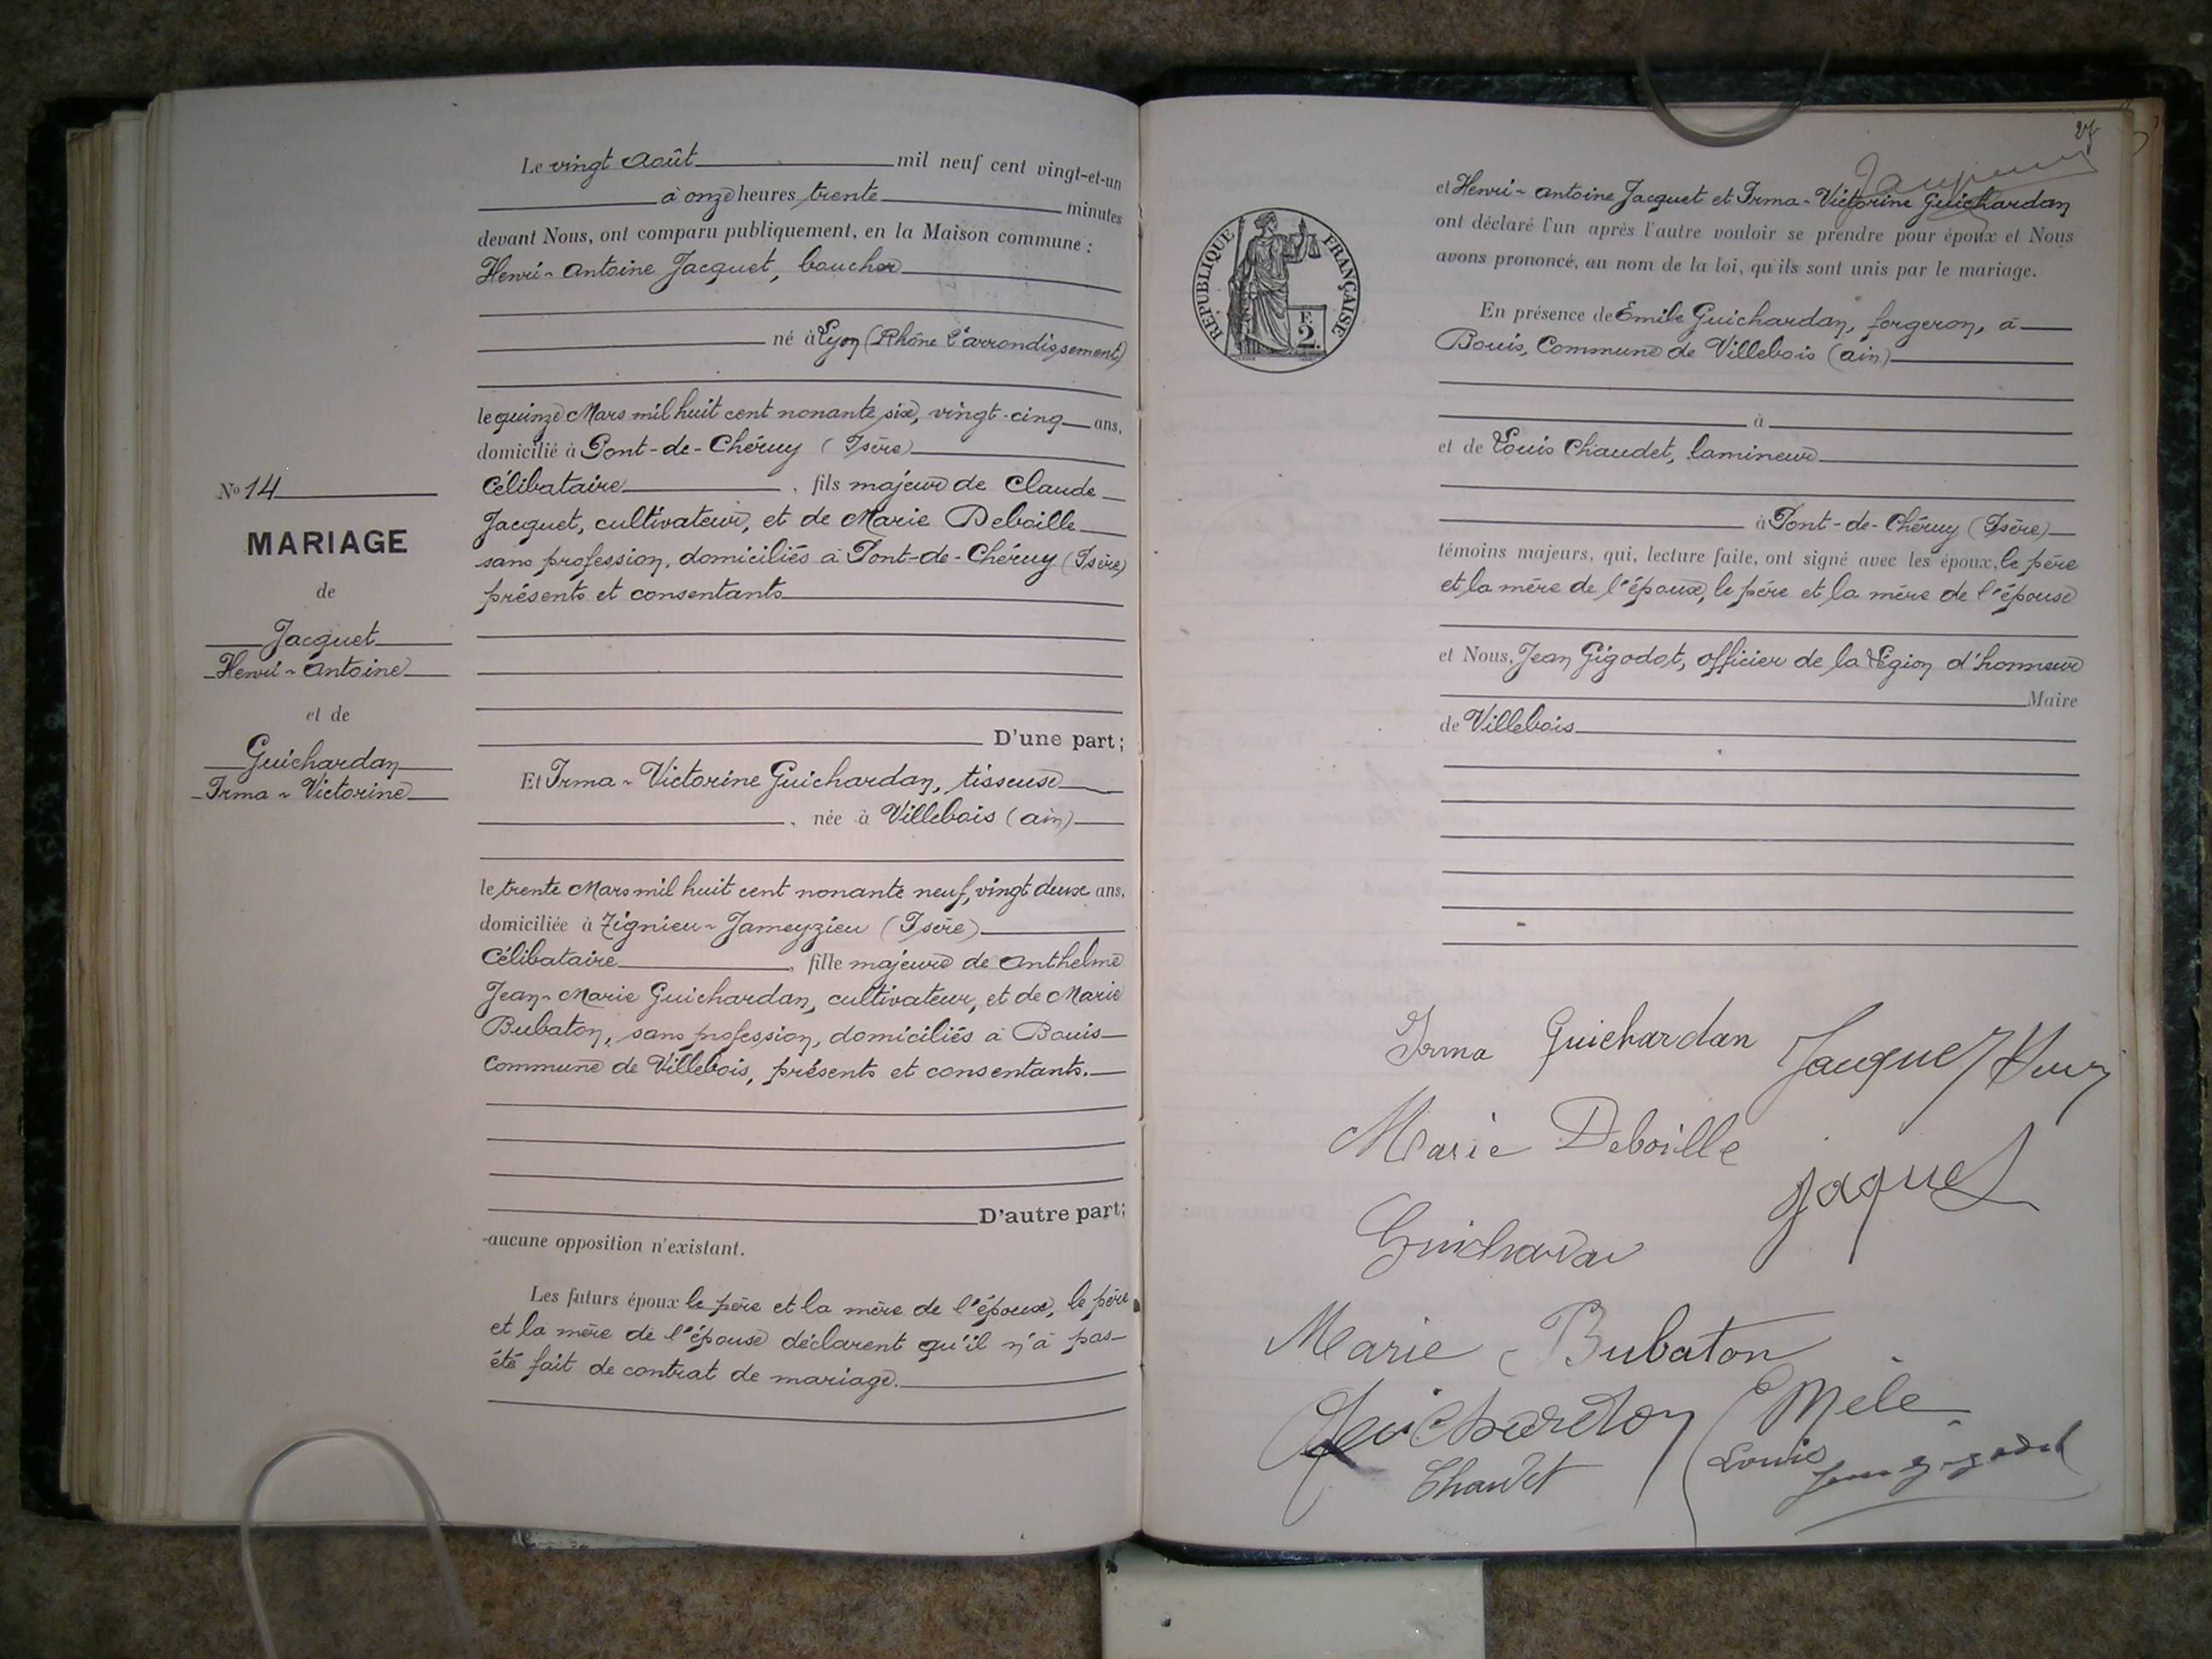 Le vingt Août mil neuf cent vingt-et-un
à onze heures trente minutes
devant Nous, ont comparu publiquement, en la Maison commune :
Henri-Antoine Jacquet, boucher
né à Lyon (Rhône arrondissement)
le quinze Mars mil huit cent nonante six, vingt-cinq ans,
domicilié à Pont-de-Chéruy (Isère)
Célibataire, fils majeur de Claude
Jacquet, cultivateur, et de Marie Deboille
sans profession, domiciliés à Pont-de-Chéruy (Isère)
présents et consentants
D'une part;
Et Irma-Victorine Guichardan, tisseuse
, née à Villebois (ain)
le trente Mars mil huit cent nonante neuf, vingt deux ans,
domiciliée à Tignieu-Jameyzieu (Isère)
Célibataire, fille majeure de Anthelme
Jean-Marie Guichardan, cultivateur, et de Marie
Bubaton, sans profession, domiciliés à Bouis
Commune de Villebois, présents et consentants.
D'autre part;
aucune opposition n'existant.
Les futurs époux le père et la mère de l'époux, le père
et la mère de l'épouse déclarent qu'il n'a pas
été fait de contrat de mariage.
No 14
MARIAGE
de
Jacquet
Henri-Antoine
et de
Guichardan
Irma-Victorine
RÉPUBLIQUE FRANÇAISE
F.
2.
et Henri-Antoine Jacquet et Irma-Victorine Guichardan
ont déclaré l'un après l'autre vouloir se prendre pour époux et Nous
avons prononcé, au nom de la loi, qu'ils sont unis par le mariage.
En présence de Emile Guichardan, forgeron, à
Bouis, Commune de Villebois (ain)
à
et de Louis Chaudet, lamineur
à Pont-de-Chéruy (Isère)
témoins majeurs, qui, lecture faite, ont signé avec les époux, le père
et la mère de l'époux, le père et la mère de l'épouse
et Nous, Jean Gigodot, officier de la Légion d'honneur
Maire
de Villebois
Irma Guichardan
Marie Deboille
Jaquet
Marie Bubaton
Emele
Louis
Chaudet